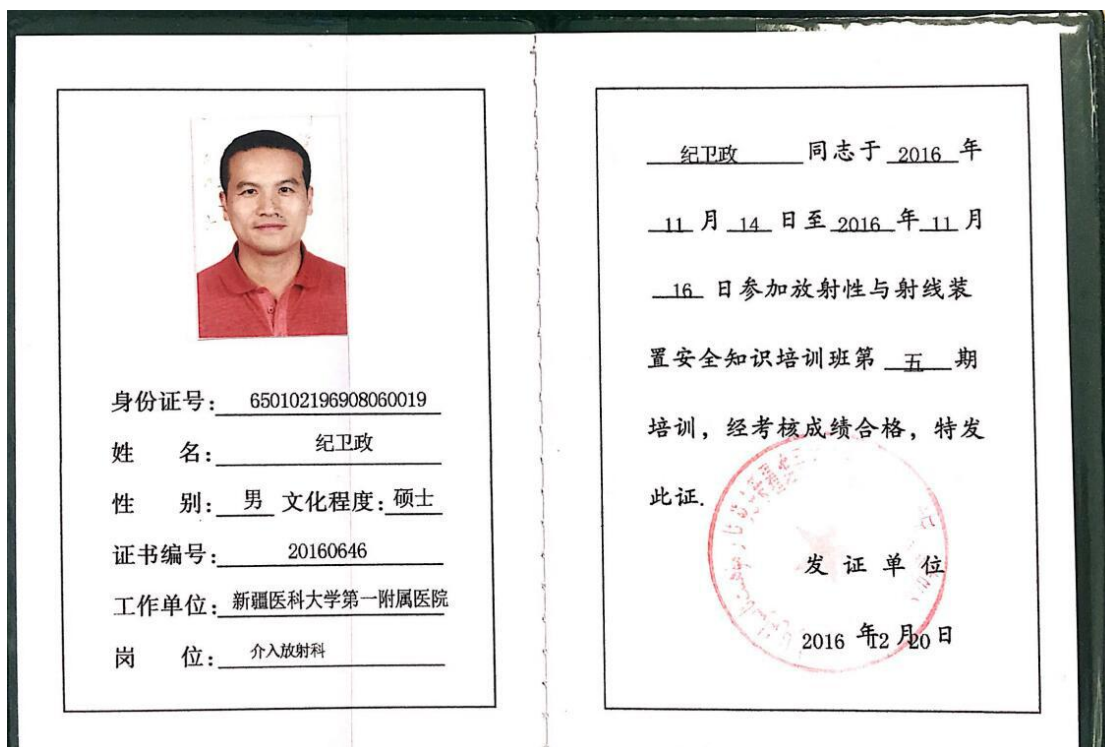 身份证号：650102196908060019
姓 名：纪卫政
性 别：男 文化程度：硕士
证书编号：20160646
工作单位：新疆医科大学第一附属医院
岗 位：介入放射科
纪卫政 同志于 2016 年
11 月 14 日至 2016 年 11 月
16 日参加放射性与射线装
置安全知识培训班第 五 期
培训，经考核成绩合格，特发
此证.
发证单位
2016 年12 月20 日